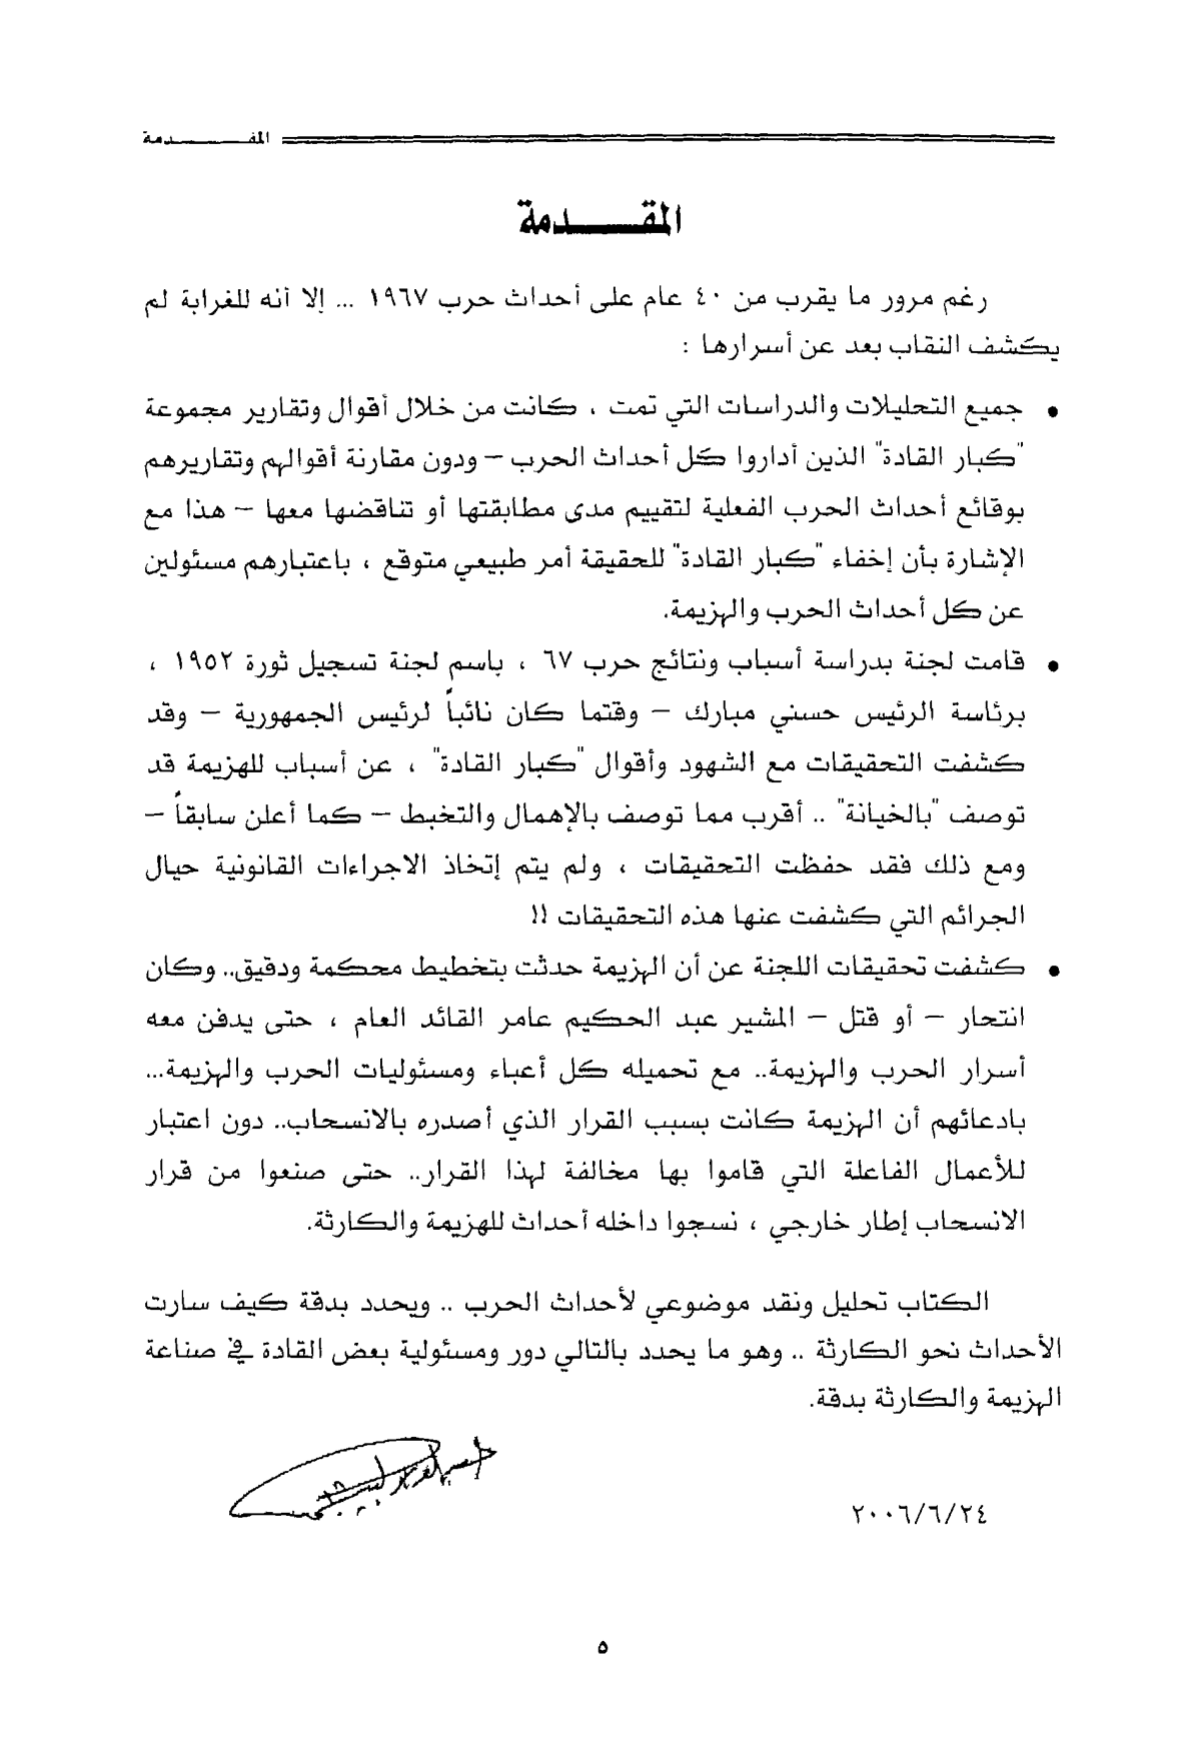 المقدمة
المقدمة
رغم مرور ما يقرب من ٤٠ عام على أحداث حرب ١٩٦٧ ... إلا أنه للغرابة لم
يكشف النقاب بعد عن أسرارها :
• جميع التحليلات والدراسات التي تمت ، كانت من خلال أقوال وتقارير مجموعة
"كبار القادة" الذين أداروا كل أحداث الحرب – ودون مقارنة أقوالهم وتقاريرهم
بوقائع أحداث الحرب الفعلية لتقييم مدى مطابقتها أو تناقضها معها – هذا مع
الإشارة بأن إخفاء "كبار القادة" للحقيقة أمر طبيعي متوقع ، باعتبارهم مسئولين
عن كل أحداث الحرب والهزيمة.
• قامت لجنة بدراسة أسباب ونتائج حرب ٦٧ ، باسم لجنة تسجيل ثورة ١٩٥٢ ،
برئاسة الرئيس حسني مبارك – وقتما كان نائباً لرئيس الجمهورية – وقد
كشفت التحقيقات مع الشهود وأقوال "كبار القادة" ، عن أسباب للهزيمة قد
توصف "بالخيانة" .. أقرب مما توصف بالإهمال والتخبط – كما أعلن سابقاً –
ومع ذلك فقد حفظت التحقيقات ، ولم يتم إتخاذ الاجراءات القانونية حيال
الجرائم التي كشفت عنها هذه التحقيقات !!
• كشفت تحقيقات اللجنة عن أن الهزيمة حدثت بتخطيط محكمة ودقيق.. وكان
انتحار – أو قتل – المشير عبد الحكيم عامر القائد العام ، حتى يدفن معه
أسرار الحرب والهزيمة.. مع تحميله كل أعباء ومسئوليات الحرب والهزيمة...
بادعائهم أن الهزيمة كانت بسبب القرار الذي أصدره بالانسحاب.. دون اعتبار
للأعمال الفاعلة التي قاموا بها مخالفة لهذا القرار.. حتى صنعوا من قرار
الانسحاب إطار خارجي ، نسجوا داخله أحداث للهزيمة والكارثة.
الكتاب تحليل ونقد موضوعي لأحداث الحرب .. ويحدد بدقة كيف سارت
الأحداث نحو الكارثة .. وهو ما يحدد بالتالي دور ومسئولية بعض القادة في صناعة
الهزيمة والكارثة بدقة.
٢٠٠٦/٦/٢٤
٥